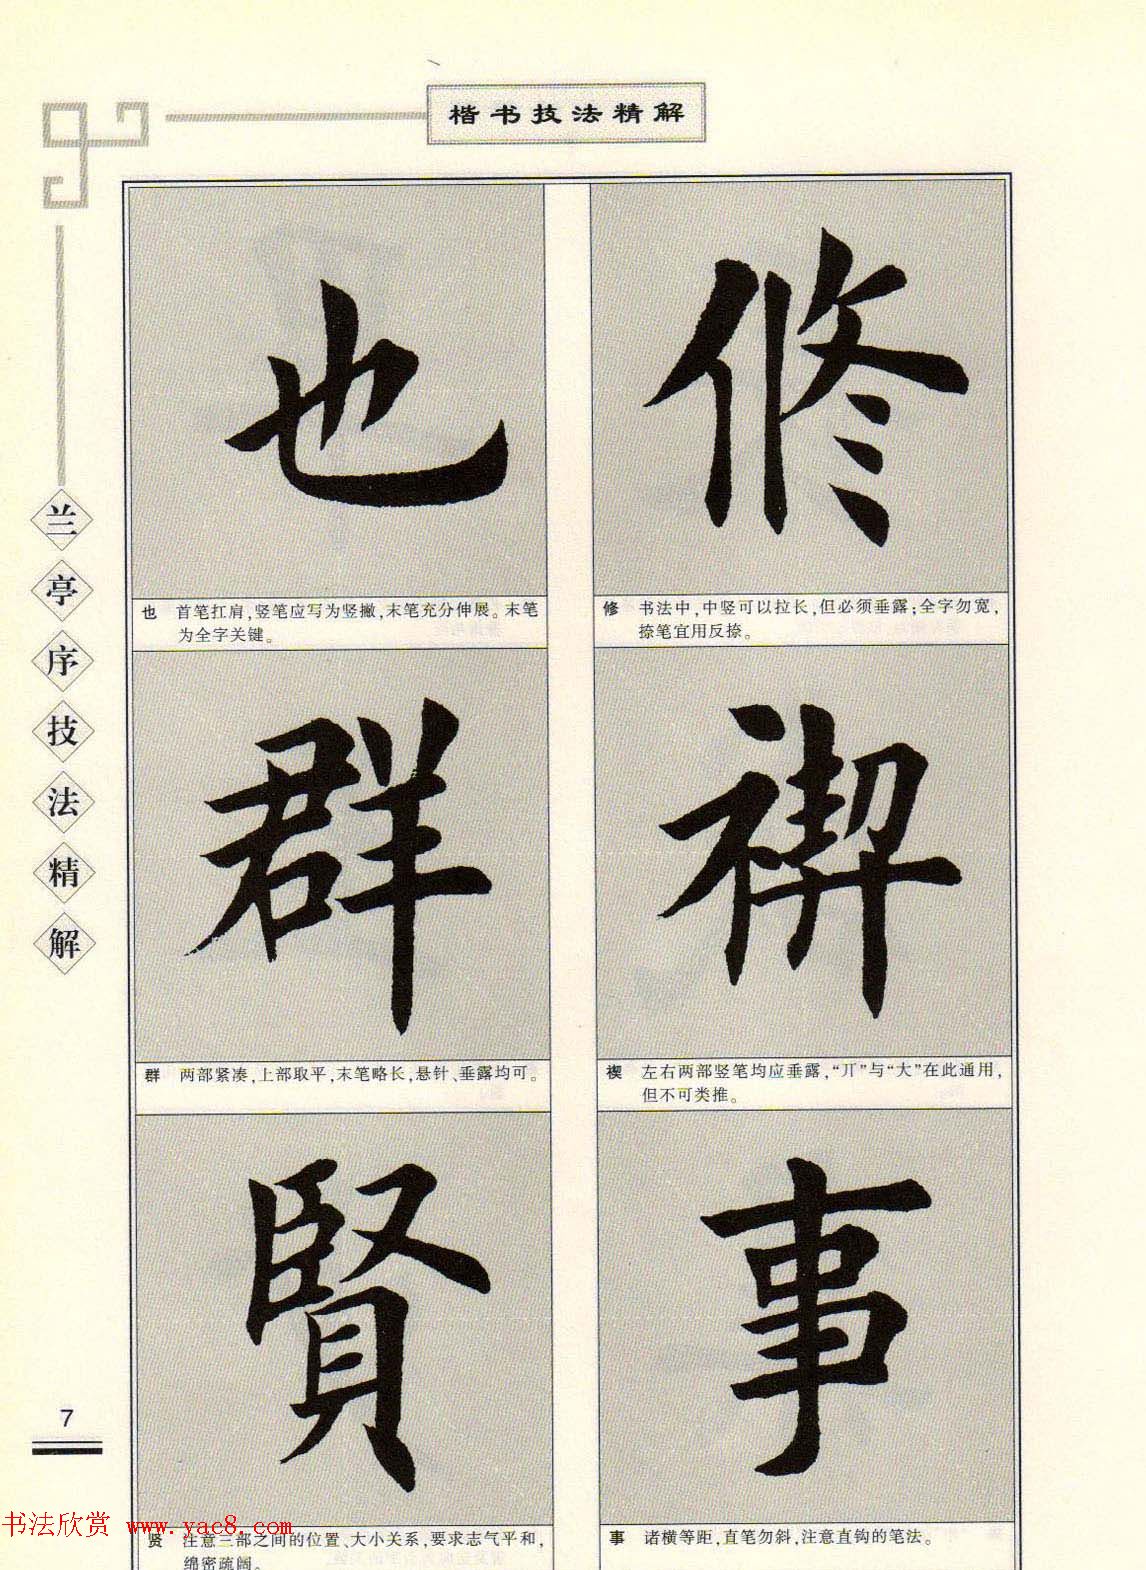 楷书技法精解
兰亭序技法精解
修
修 书法中,中竖可以拉长,但必须垂露;全字勿宽,
捺笔宜用反捺。
禊
禊 左右两部竖笔均应垂露,“丌”与“大”在此通用,
但不可类推。
事
事 诸横等距,直笔勿斜,注意直钩的笔法。
也
也 首笔扛肩,竖笔应写为竖撇,末笔充分伸展。末笔
为全字关键。
群
群 两部紧凑,上部取平,末笔略长,悬针、垂露均可。
賢
贤 注意三部之间的位置、大小关系,要求志气平和,
绵密疏阔。
7
书法欣赏 www.yac8.com